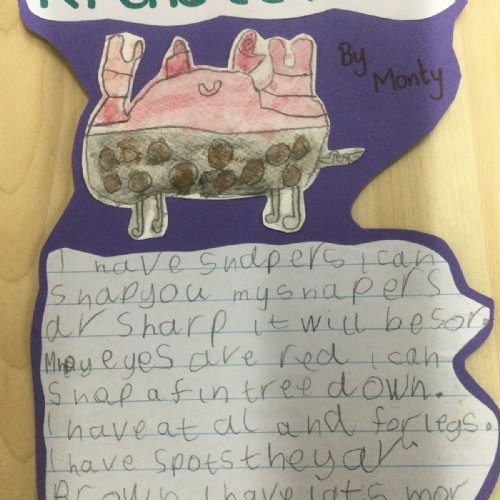 By
Monty
I have snapers i can
snap you my snapers
ar sharp it will be sor.
My eyes are red i can
snap a fin tree down.
I have at al and for legs.
I have spots they ar
Brown I have lots mor